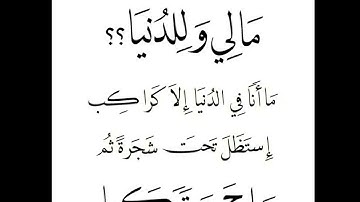 مَالِي وَلِلدُنْيَا؟؟
مَا أَنَا فِي الدُنْيَا إِلاَ كَرَاكِب
إِستَظَلَ تَحتَ شَجَرَةً ثُم